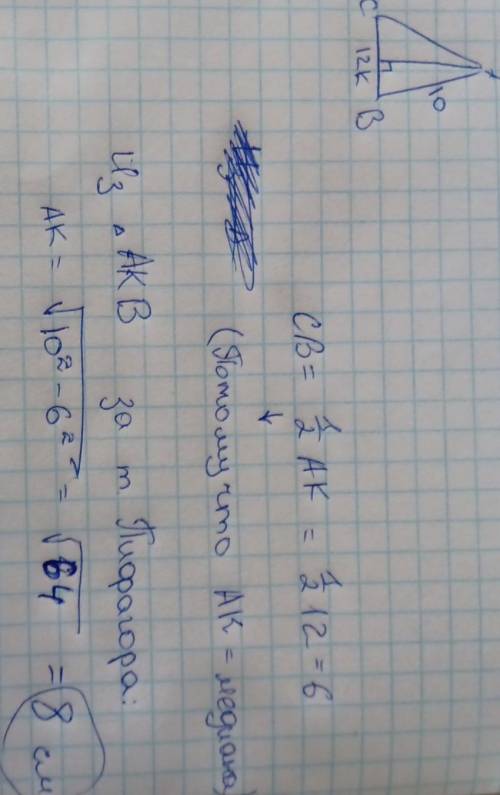 C 12 K B
10
CB = 1/2 AK = 1/2 12 = 6
(Потому что AK = медиана)
Из △ AKB за т Пифагора:
AK = √10² - 6² = √64 = 8 см